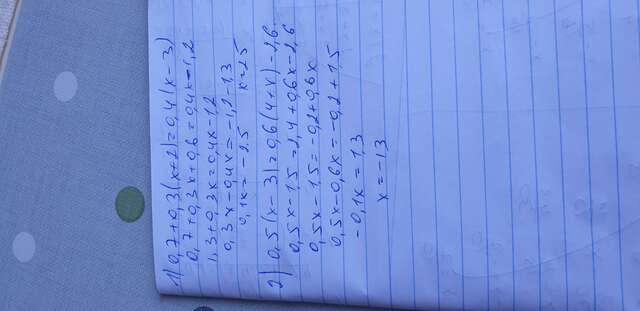 1) 0,7+0,3(x+2)=0,4(x-3)
0,7+0,3x+0,6=0,4x-1,2
1,3+0,3x=0,4x-1,2
0,3x-0,4x=-1,2-1,3
0,1x=-2,5 x=25
2) 0,5(x-3)=0,6(4+x)-2,6
0,5x-1,5=2,4+0,6x-2,6
0,5x-1,5=-0,2+0,6x
0,5x-0,6x=-0,2+1,5
-0,1x=1,3
x=-13